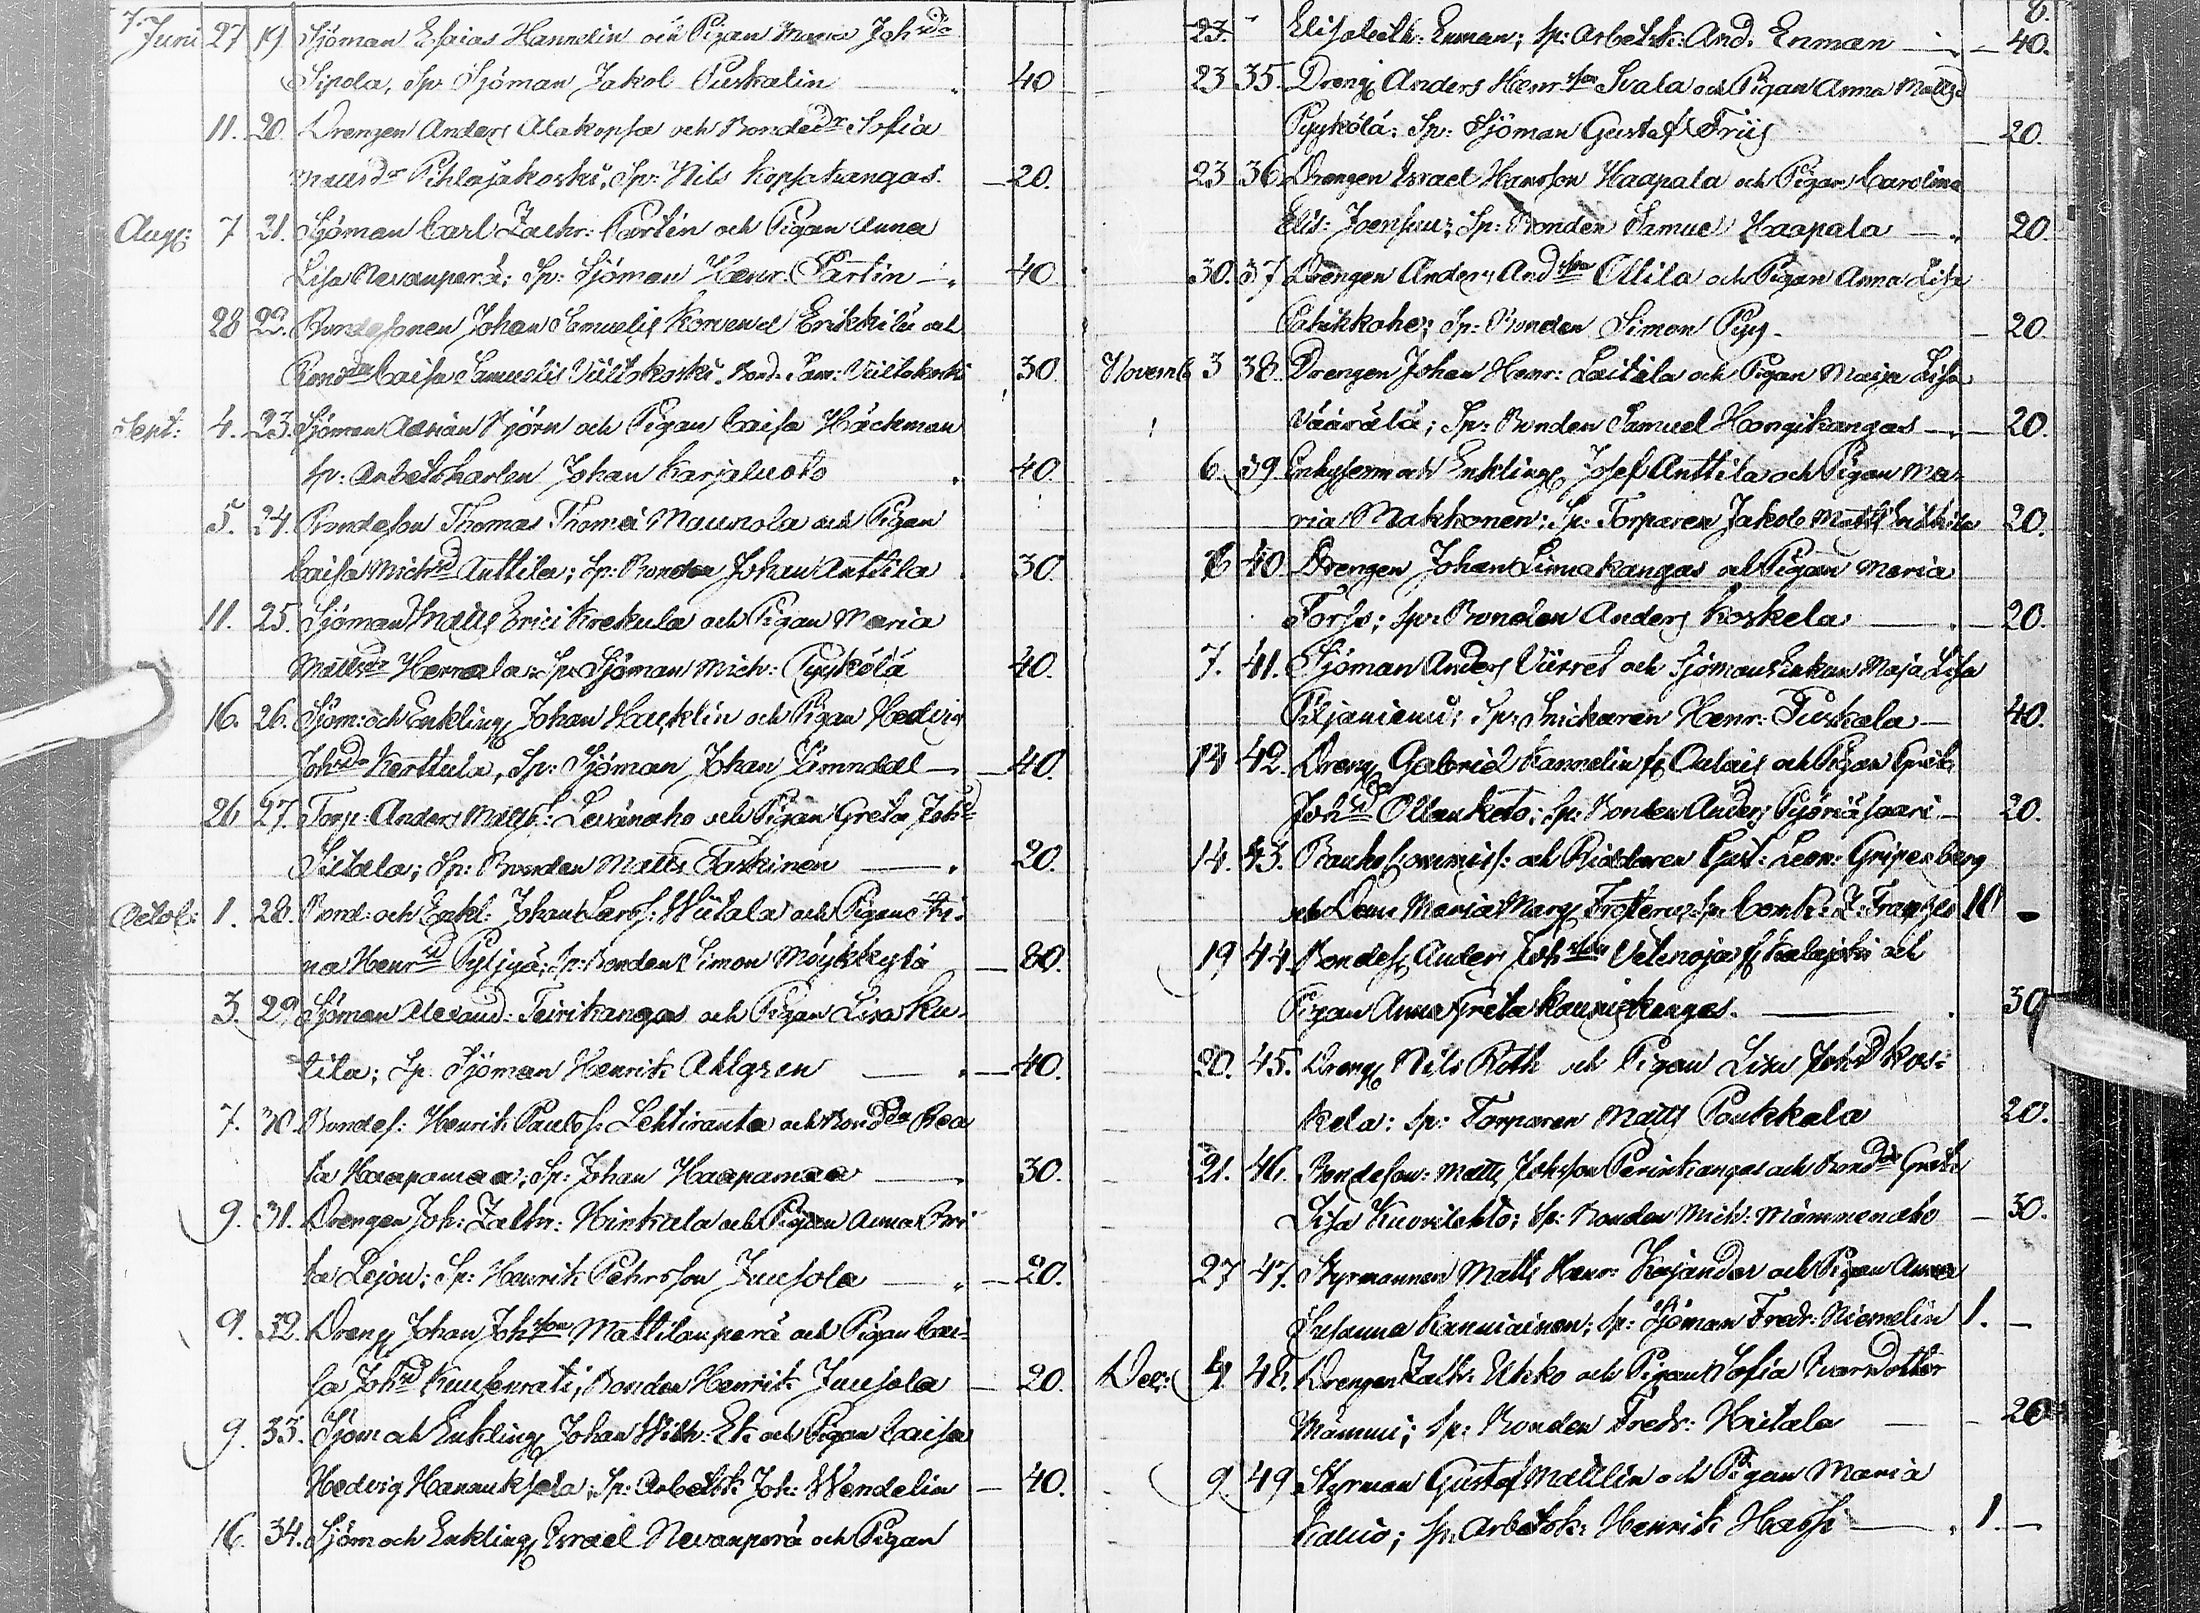 7.
Juni 27 19 Sjöman Esaias Hannelin och Pigan Maria Johsdr
Sipola, Sp. Sjöman Jakob Tuskalin 40
11. 20. Drengen Anders Alakopsa och Bondedr Sofia
Matsdr Pihlajakoski, Sp: Nils Kopsakangas. 20.
Aug: 7 21. Sjöman Carl Zachr: Partin och Pigan Anna
Lisa Nevanperä; Sp: Sjöman Henr: Partin 40
28 22. Bondesonen Johan Samuelis Erikkilä och
Bonddr Caisa Samuelis Viitakoski. Bond. Sam: Viitakoski 30.
Sept: 4. 23. Sjöman Adrian Björn och Pigan Caisa Häckman
Sp: Arbetskarlen Johan Karjaluoto 40.
5. 24. Bondeson Thomas Thomæ Maunola och Pigan
Caisa Michsd Anttila; Sp: Bonden Johan Anttila 30.
11. 25. Sjöman Matts Erici Krekula och Pigan Maria
Mattsdr Herrala: Sp: Sjöman Mich: Pyykölä 40.
16. 26. Sjöm: och Enkling Johan Hacklin och Pigan Hedvig
Johsdr Kerttula, Sp: Sjöman Johan 40.
26 27. Torp: Anders Mattss: Levänaho och Pigan Greta Johs
Sietala; Sp: Bonden Matts Taskinen 20.
Octob: 1. 28. Bond: och Enkl: Johan Larss: Wiitala och Pigan Sti-
na Henrsd Pyljyä; Sp: Bonden Simon Möykkylä 80.
3. 29. Sjöman Alexand: Teirikangas och Pigan Lisa Ku-
tila; Sp. Sjöman Henrik Ahlgren 40.
7. 30. Bondes: Henrik Paulss. Lehtiranta och Bonddr Bea
ta Haapamaa; Sp: Johan Haapamaa 30.
9. 31. Drengen Joh: Zachr: Hinkala och Pigan Anna Bri
ta Lejon; Sp: Henrik Pehrsson Juusola 20.
9. 32. Dreng Johan Johsson Mattilanperä och Pigan Cai-
sa Johsd Kuusenrati; Bonden Henrik Juusola 20.
9. 33. Sjöm och Enkling Johan Wilh: Ek och Pigan Caisa
Hedvig Hannuksela; Sp: Arbetsk: Joh: Wendelin 40.
16. 34. Sjöm och Enkling Israel Nevanperä och Pigan
8.
23. Elisabeth Enman; Sp: Arbetsk: And. Enman 40.
23 35. Dreng Anders Henrsson Svala och Pigan Anna Mattsd
Pyykölä: Sp: Sjöman Gustaf Friis 20.
23 36. Drengen Israel Hansson Haapala och Pigan Carolina
Elis: Joensuu; Sp: Bonden Samuel Haapala 20.
30. 37 Drengen Anders Andsson Ollila och Pigan Anna Lisa
Sp: Bonden Simon Pyy 20.
Novemb 3 38. Drengen Johan Henr: Laitala och Pigan Maija Lisa
Väärälä; Sp: Bonden Samuel Hangikangas 20.
6. 39. och Enkling Josef Anttila och Pigan Ma-
ria Makkonen; Sp: Torparen Jakob Matts: Erikkilä 20.
6 40. Drengen Johan Linnakangas och Pigan Maria
Forss; Sp: Bonden Anders Koskela 20.
7. 41. Sjöman Anders Viirret och Sjömans Enkan Maja Lisa
Siljaniemi; Sp: Snickaren Henr: Tuskala 40.
14 42. Dreng Gabriel Kannelin fr Oulais och Pigan Greta
Johsd Ollanketo; Sp: Bonden Anders Pyöriäsaari 20.
14. 43. Banko Commiss: och Riddaren Gust: Leon: Gripenberg
och Dem: Maria Marg Frosterus, Sp: Z: Franzén 10 -
19 44. Bondes Anders Johsson Vilenoja fr Kalajoki och
Pigan Anna Greta Kauniskangas. 30
20. 45. Dreng Nils Roth och Pigan Lisa Johsd Kos-
kela: Sp: Torparen Matts Paukkala 20.
21. 46. Bondeson: Matts Johsson Perinkangas och Bonddr Greta
Lisa Kuorilehto; Sp: Bonden Mich: Mämmenaho 30.
27 47. Styrmannen Matts Henr: Kajander och Pigan Anna
Susanna Kanniainen; Sp: Sjöman Fredr: Niemelin 1. -
Dec: 4. 48. Drengen Zachr: Ukko och Pigan Sofia Ivarsdotter
Mämmi; Sp: Bonden Fredr: Hietala 20
9. 49 Styrman Gustaf Mattlin och Pigan Maria
Kallio; Sp: Arbetsk: Henrik Hassi 1. -